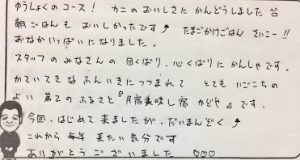 ゆうしょくのコース! カニのおいしさに かんどうしました
朝ごはんも おいしかったです たまごかけごはん さいこー!!
おなかいっぱいになりました。
スタッフのみなさんの 目くばり、心くばりに かんしゃです。
かていてきな ふんいきにつつまれて とても いごこちの
よい 第2のふるさと『 美味し宿 かどや』です。
今回、はじめて 来ましたが、だいまんぞく
これから 毎年 来たい気分です
ありがとうございました ♡♡♡